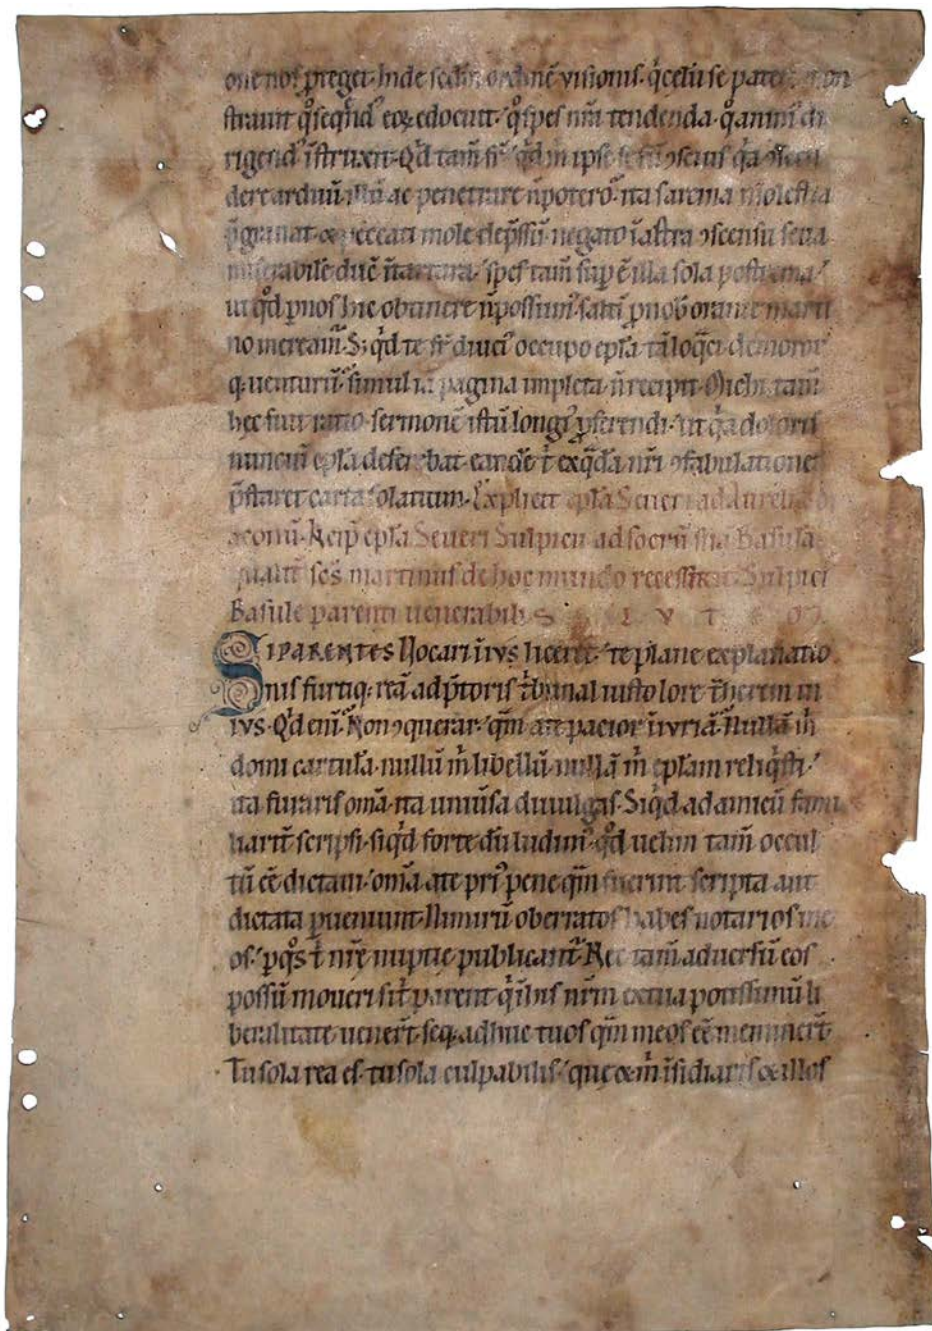 one nos proteget. Inde sedm ordine visionis. qd celu se pate
strauit qo seqnd eos edocuit. qo spes nra tendenda. qo animu di
rigend istruxit. Qd tam fr qd in ipse
dere arduu illu ac penetrare n potero. ita sarcina molesta
pgrauat & peccati mole depssu negato i astra ascensu seua
miserabile duc n tartara. spes tam supe illa sola postrema.
ut qd p nos hic obtinere n possum. saltim p nob orante marti
no meream. S; qd te fr diuci occupo epla ta loqci demoror
q uenturu. simul ia pagina impleta n recipit. Michi tam
hec fuit ratio sermone istu longi pferendi. ut qa doloris
nunciu epla deferebat. earde & ex qda nri ofabulatione
pstaret carta solatium. Explicit epla Seueri ad Aureliu
aconu. Recip epla Seueri Sulpicii ad socru sua Basula
scs martinus de hoc mundo recessit. Sulpici
Basule parenti uenerabili S L V T
SI PARENTES Vocari i ivs liceret. te plane explanatio
nis furtiq; rea ad ptoris tbunal iusto lore t herem in
ivs. Qd eni. Non oquerar. qm a te pacior iivria. Nulla m
domi cartula. nullu m libellu. nulla m eplam reliqsti.
ita furaris oma. ita uniusa diuulgas. Siqd ad amicu fami
liarit scripsi. siqd forte du ludim. qd uelim tam occul
tu ee dictam. oma a te pri pene qm fuerint scripta aut
dictata pueniunt. Nimiru oberratos habes notarios me
os. p qos t nre nuptie publicant. Nec tam aduersu eos
possu moueri si t parent qi inis nrm ex tua potissimu li
beralitate uenert. seq; adhuc tuos qm meos ee meminert
Tu sola rea es. tu sola culpabilis. que & m isidiaris & illos